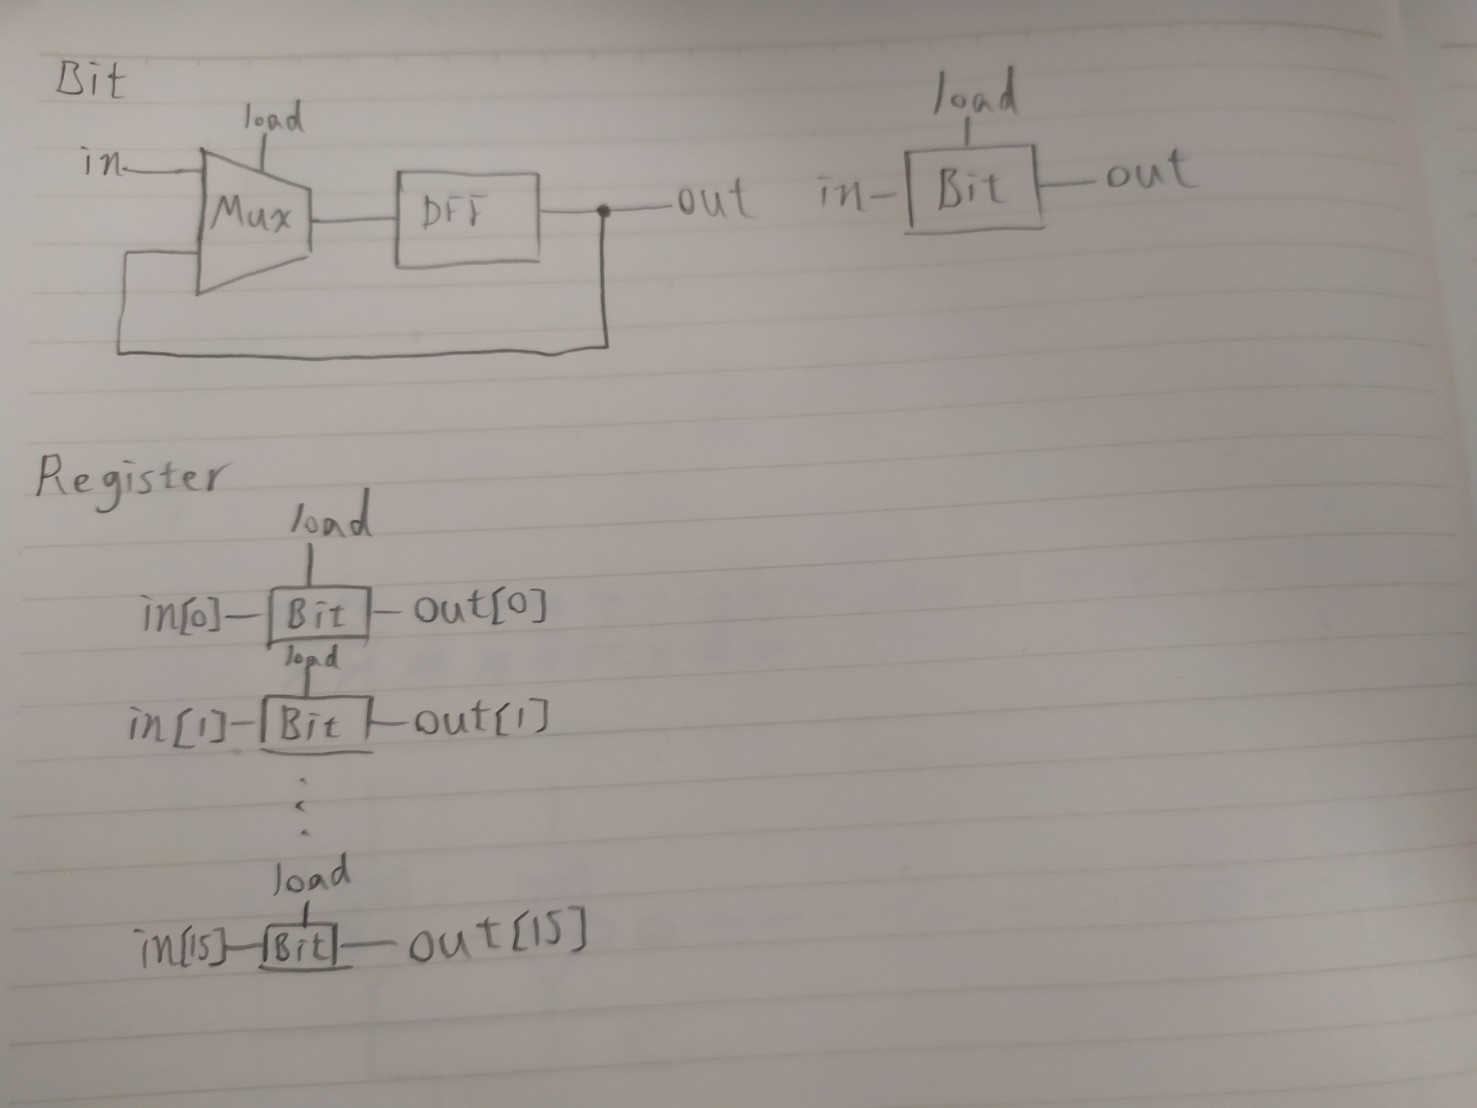 Bit
load
in
Mux
DFF
out
load
in
Bit
out
Register
load
in[0]
Bit
out[0]
load
in[1]
Bit
out[1]
load
in[15]
Bit
out[15]